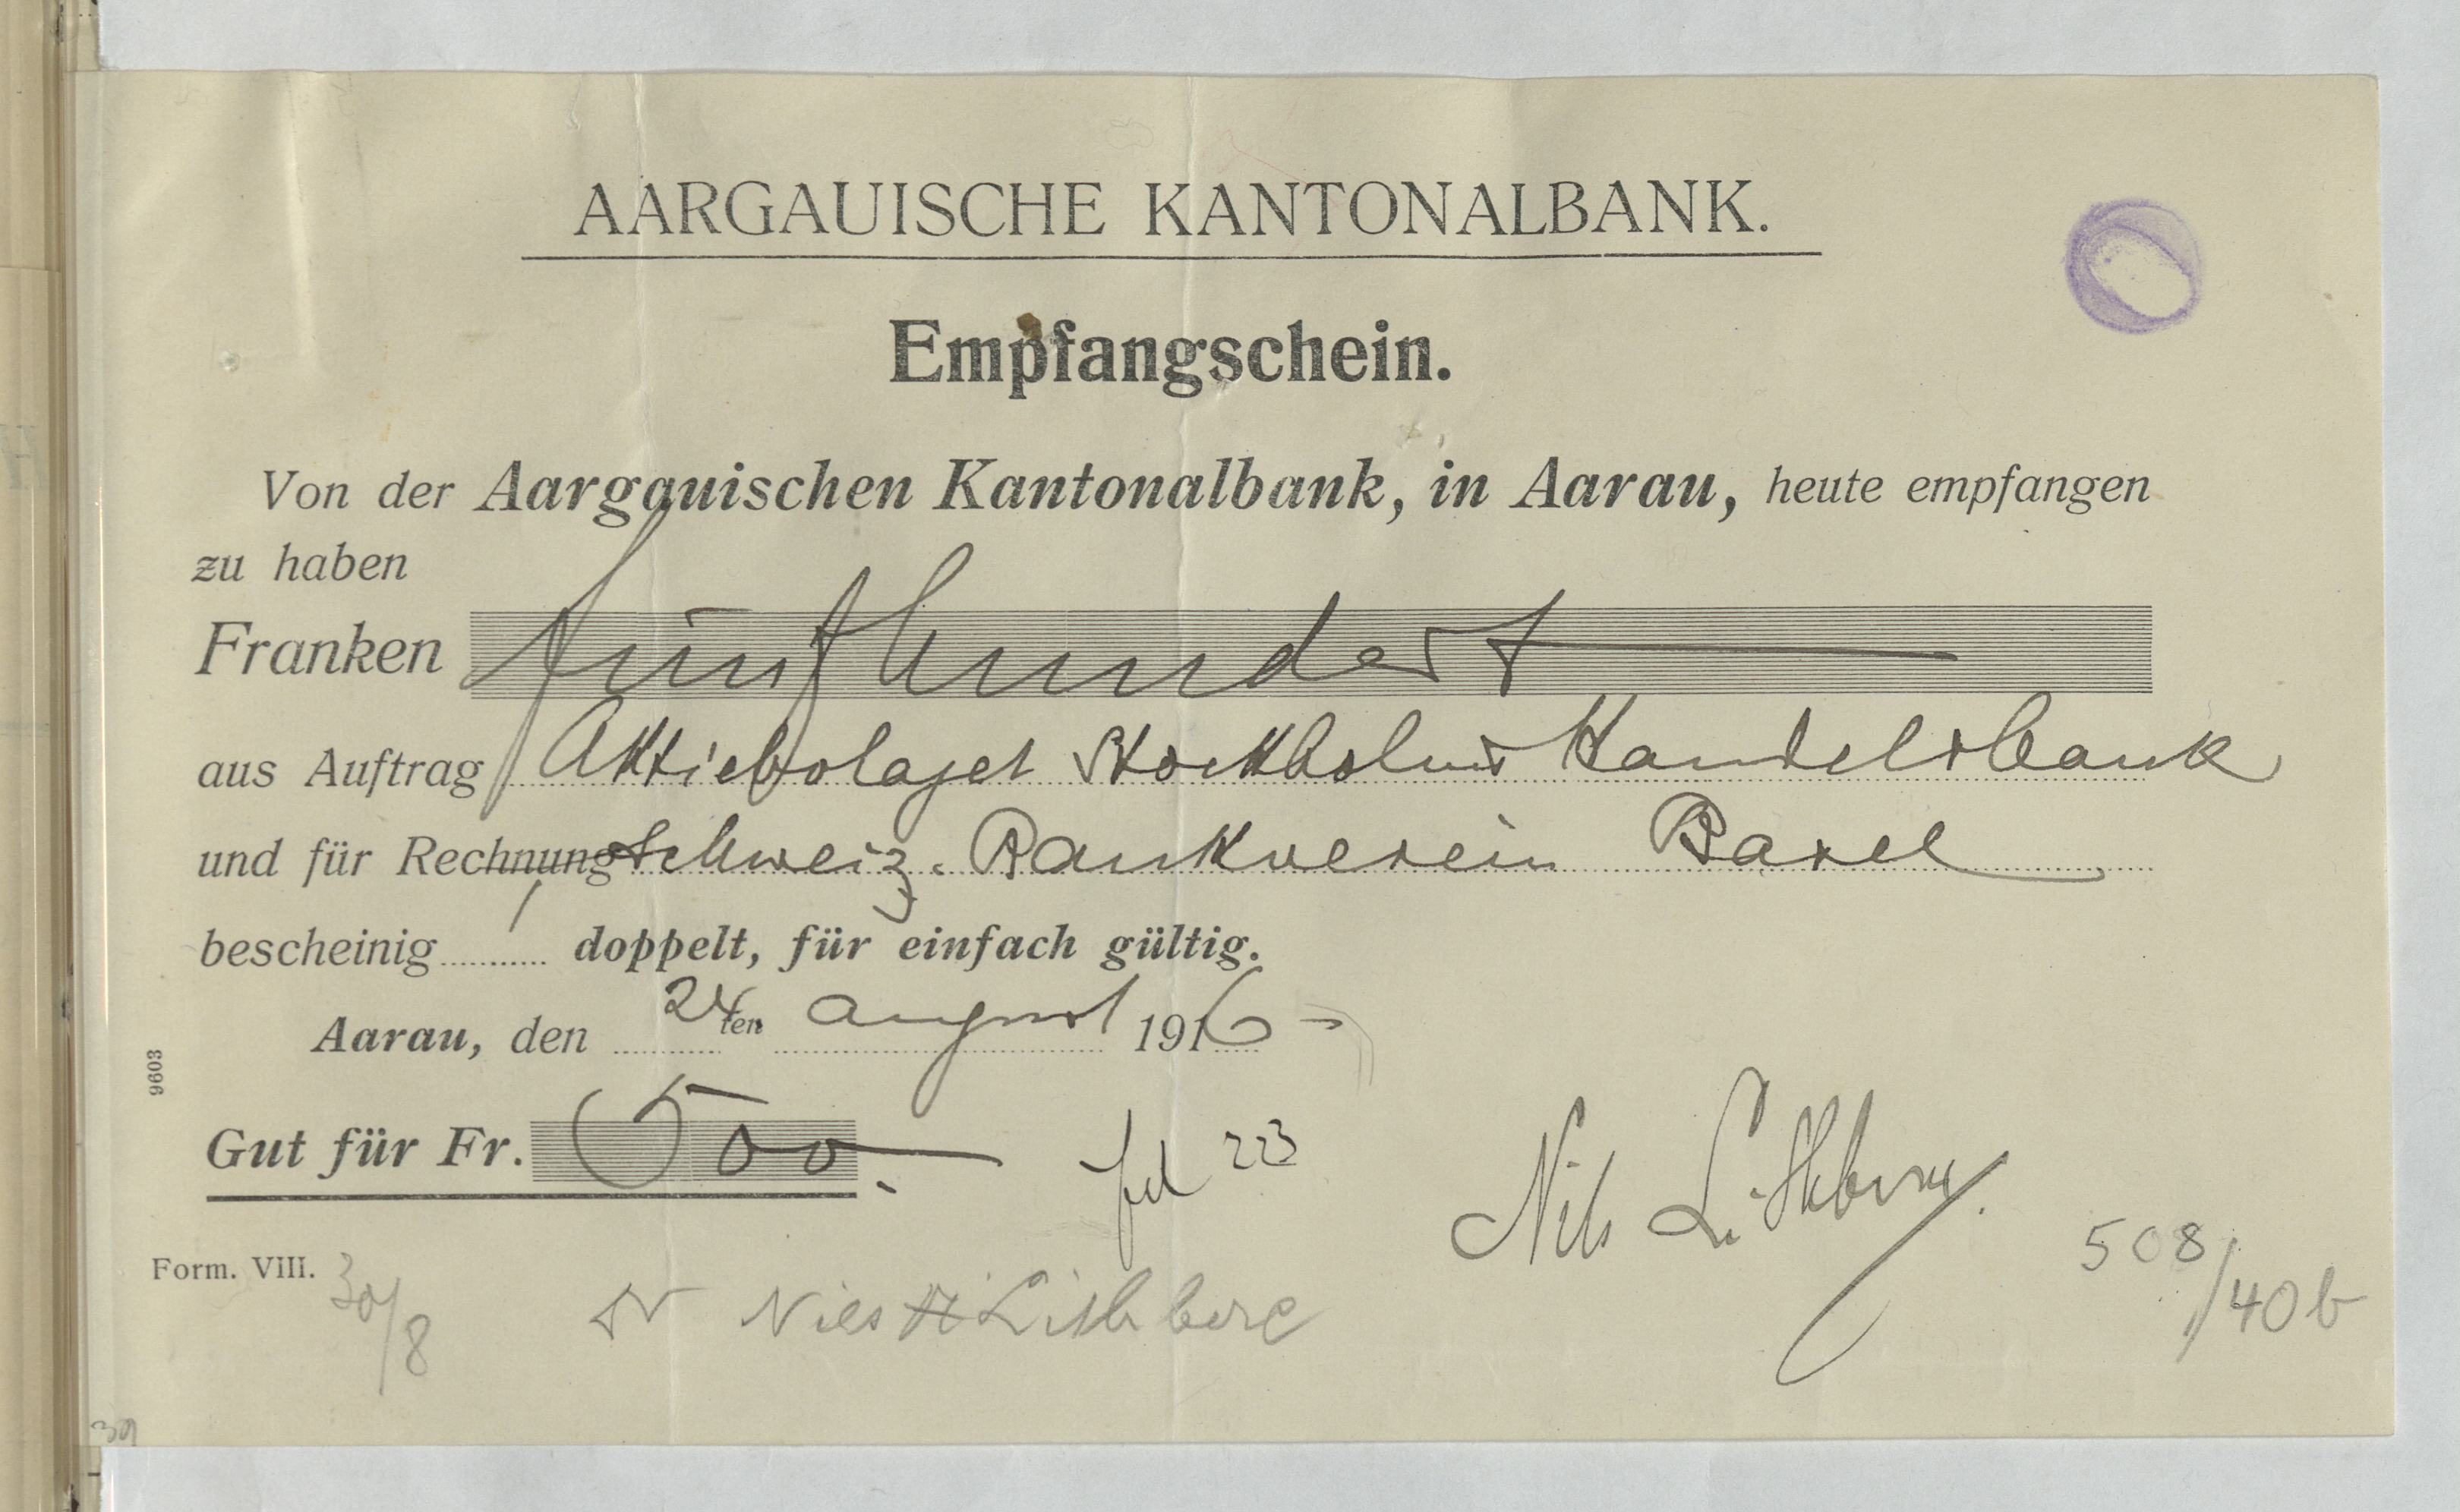 AARGAUISCHE KANTONALBANK.
Empfangschein.
Von der Aargauischen Kantonalbank, in Aarau, heute empfangen
zu haben
Franken fünfhundert
aus Auftrag Aktiebolaget Stockholms Handelsbank
und für Rechnung Schweiz. Bankverein Basel
bescheinig doppelt, für einfach gültig.
Aarau, den 24ten August 1916
9603
Gut für Fr. 500.—
223
Nils Lithberg.
508/40b
Form. VIII. 30/8
Dr Niels Lithberg
39